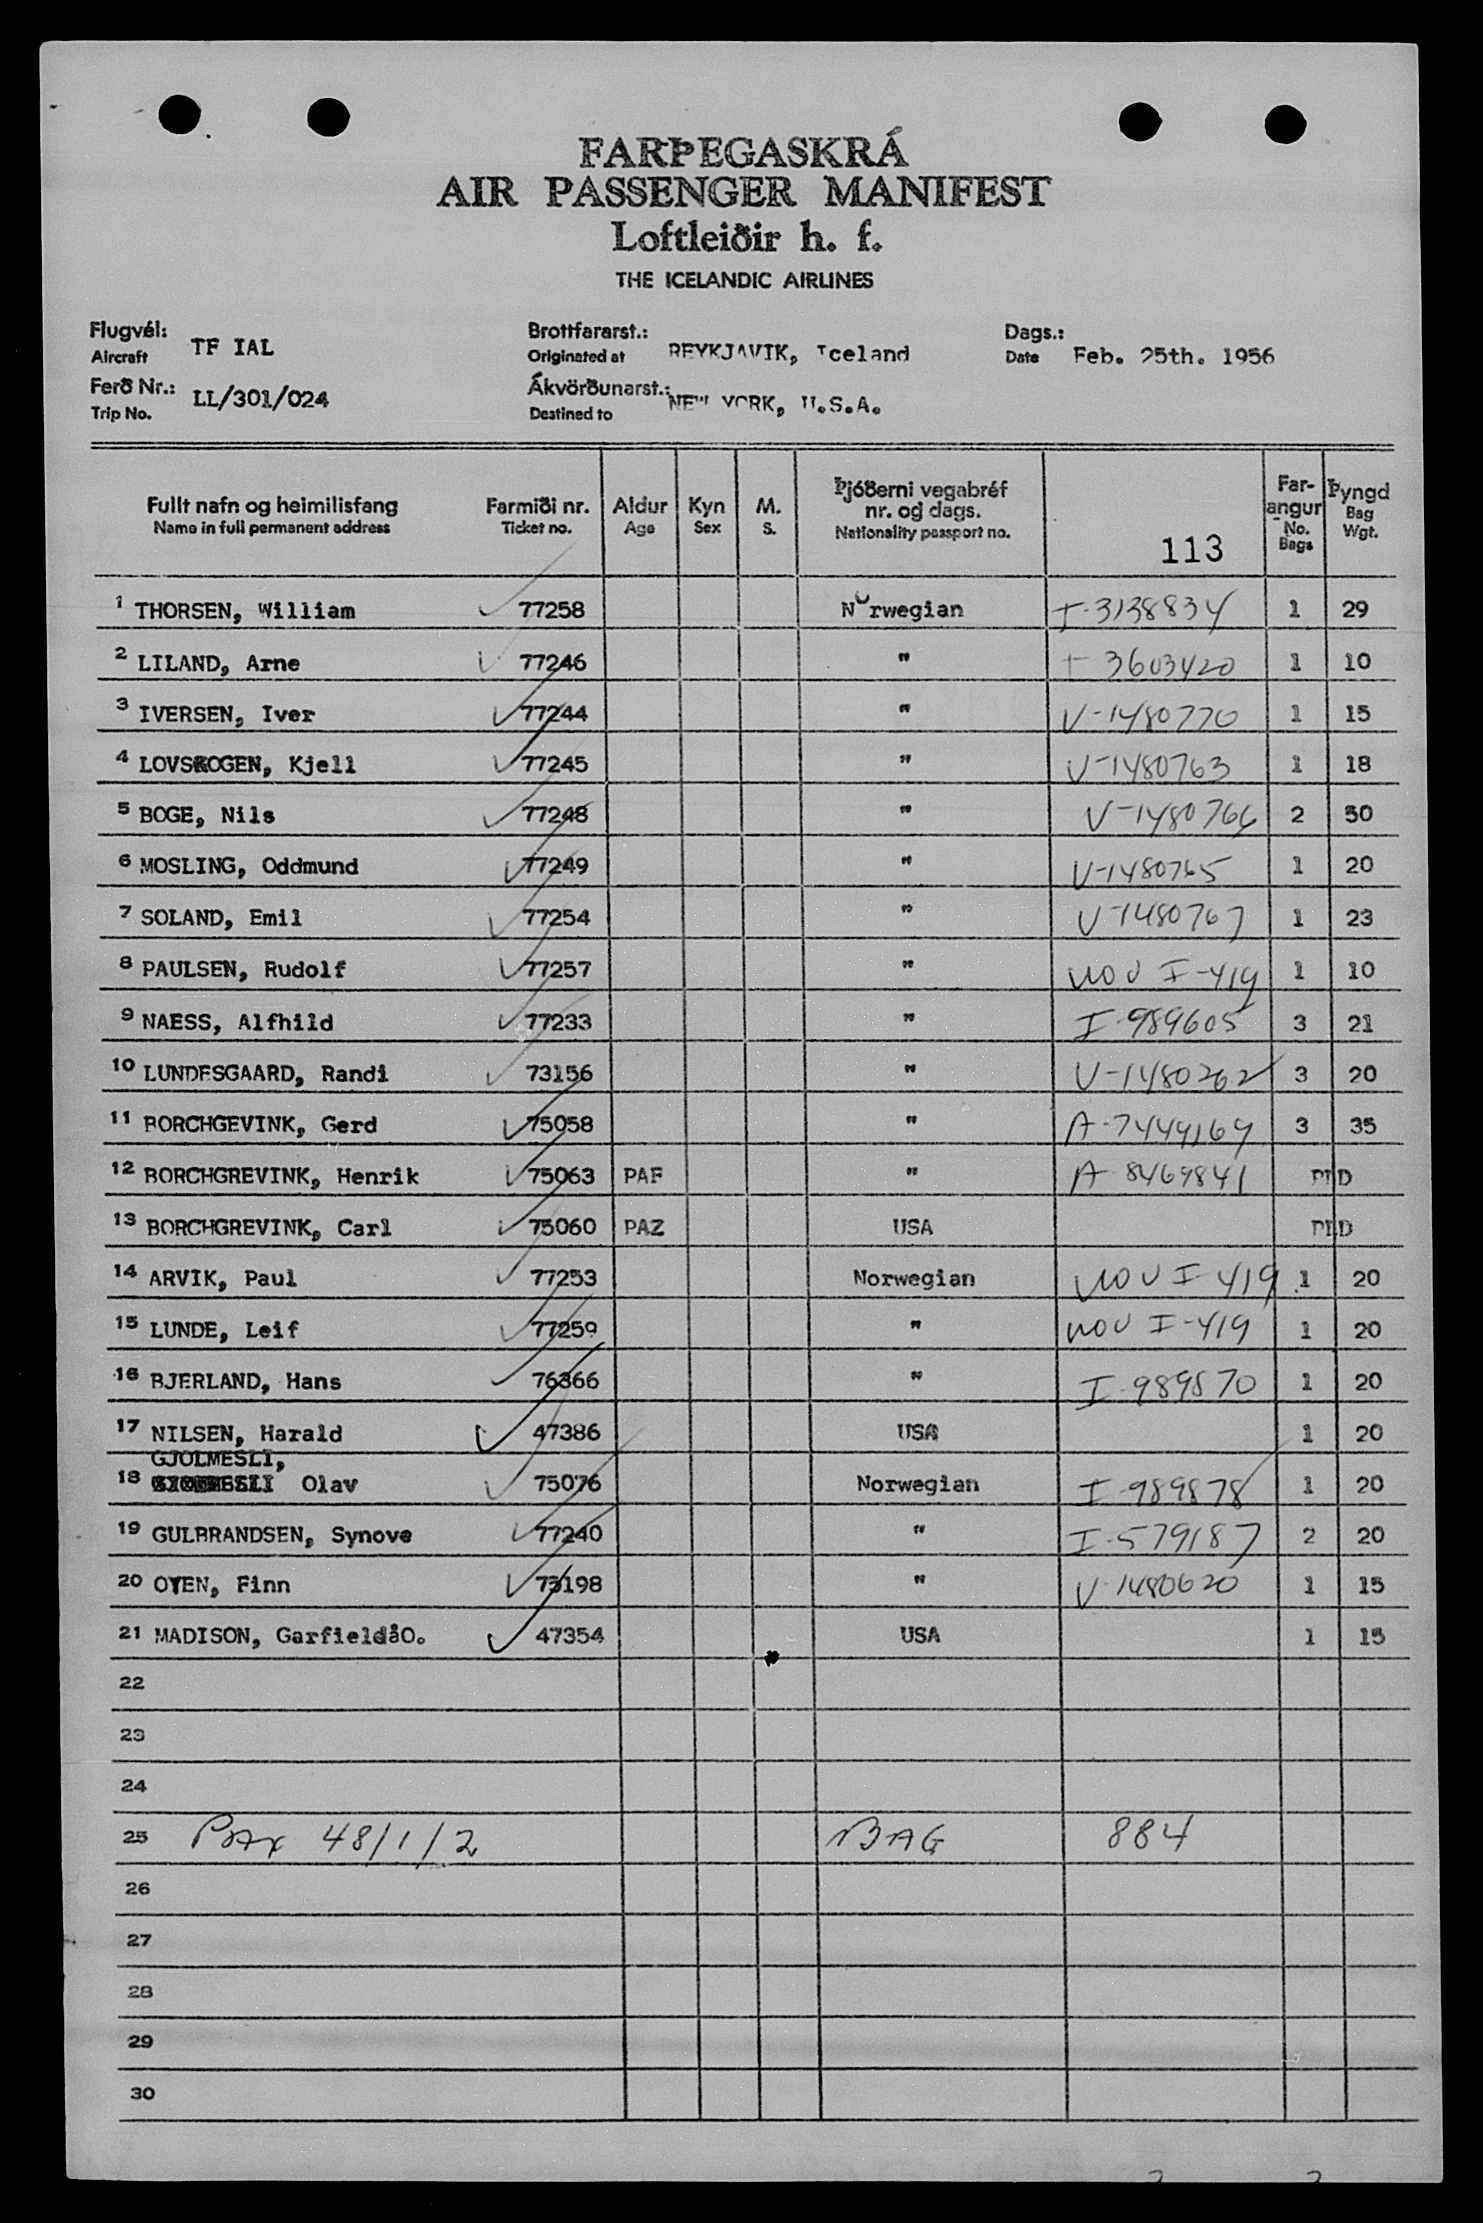 FARÞEGASKRÁ
AIR PASSENGER MANIFEST
Loftleiðir h. f.
THE ICELANDIC AIRLINES
Flugvél: TF IAL Brottfararst.: Dags.:
Aircraft Originated at REYKJAVIK, Iceland Date Feb. 25th. 1956
Ferð Nr.: LL/301/024 Ákvörðunarst.:
Trip No. Destined to NEW YORK, U.S.A.
Fullt nafn og heimilisfang Farmiði nr. Aldur Kyn M. Þjóðerni vegabréf nr. og dags. Farangur Þyngd
Name in full permanent address Ticket no. Age Sex S. Nationality passport no. 113 No. Bags Bag Wgt.
1 THORSEN, William 77258 Norwegian I-3138834 1 29
2 LILAND, Arne 77246 " I-3603420 1 10
3 IVERSEN, Iver 77244 " V-1480770 1 15
4 LOVSKOGEN, Kjell 77245 " V-1480763 1 18
5 BOGE, Nils 77248 " V-1480766 2 50
6 MOSLING, Oddmund 77249 " V-1480765 1 20
7 SOLAND, Emil 77254 " V-1480767 1 23
8 PAULSEN, Rudolf 77257 " NOV I-419 1 10
9 NAESS, Alfhild 77233 " I-989605 3 21
10 LUNDESGAARD, Randi 73156 " V-1480262 3 20
11 BORCHGEVINK, Gerd 75058 " A-7449169 3 35
12 BORCHGREVINK, Henrik 75063 PAF " A-8469841
13 BORCHGREVINK, Carl 75060 PAZ USA
14 ARVIK, Paul 77253 Norwegian NOV I-419 1 20
15 LUNDE, Leif 77259 " NOV I-419 1 20
16 BJERLAND, Hans 76366 " I-989870 1 20
17 NILSEN, Harald 47386 USA 1 20
GJOLMESLI,
18 Olav 75076 Norwegian I-989878 1 20
19 GULBRANDSEN, Synove 77240 " I-579187 2 20
20 OYEN, Finn 75198 " V-1480620 1 15
21 MADISON, GarfieldåO. 47354 USA 1 15
22
23
24
25 PAX 48/1/2 BAG 884
26
27
28
29
30